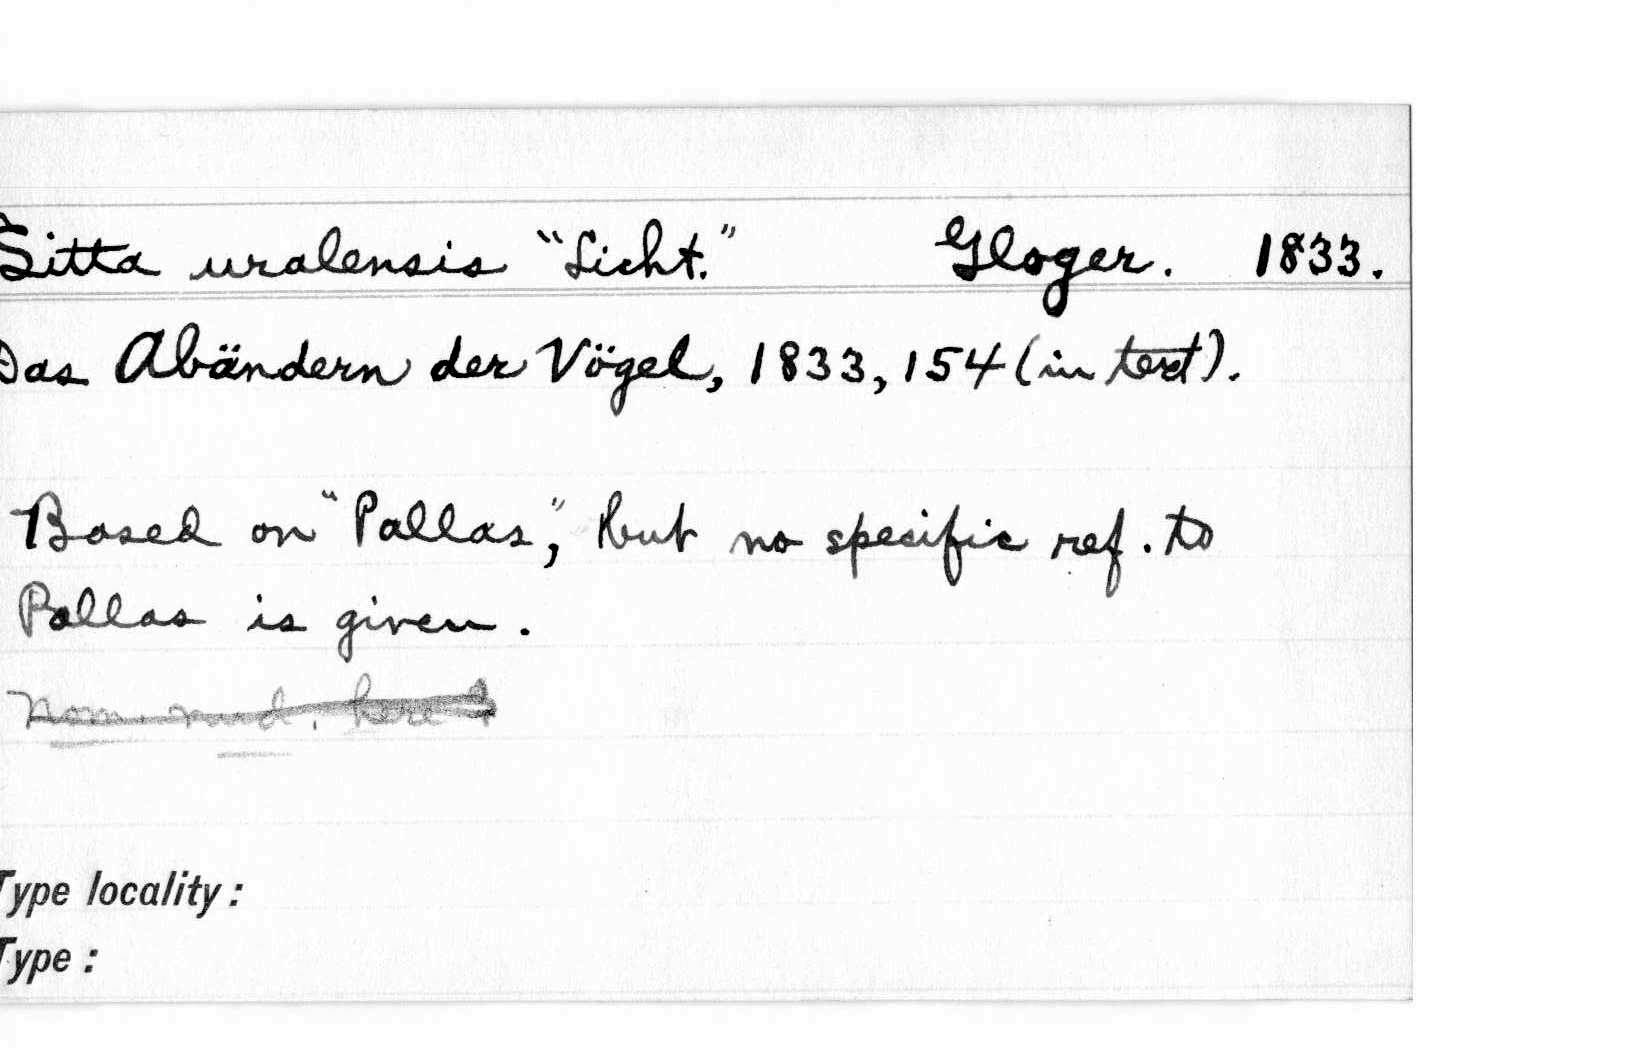 Sitta uralensis "Licht." Gloger. 1833.
Das Abändern der Vögel, 1833, 154 (in text).
Based on "Pallas," but no specific ref. to
Pallas is given.
Nom. nud. here
Type locality:
Type: